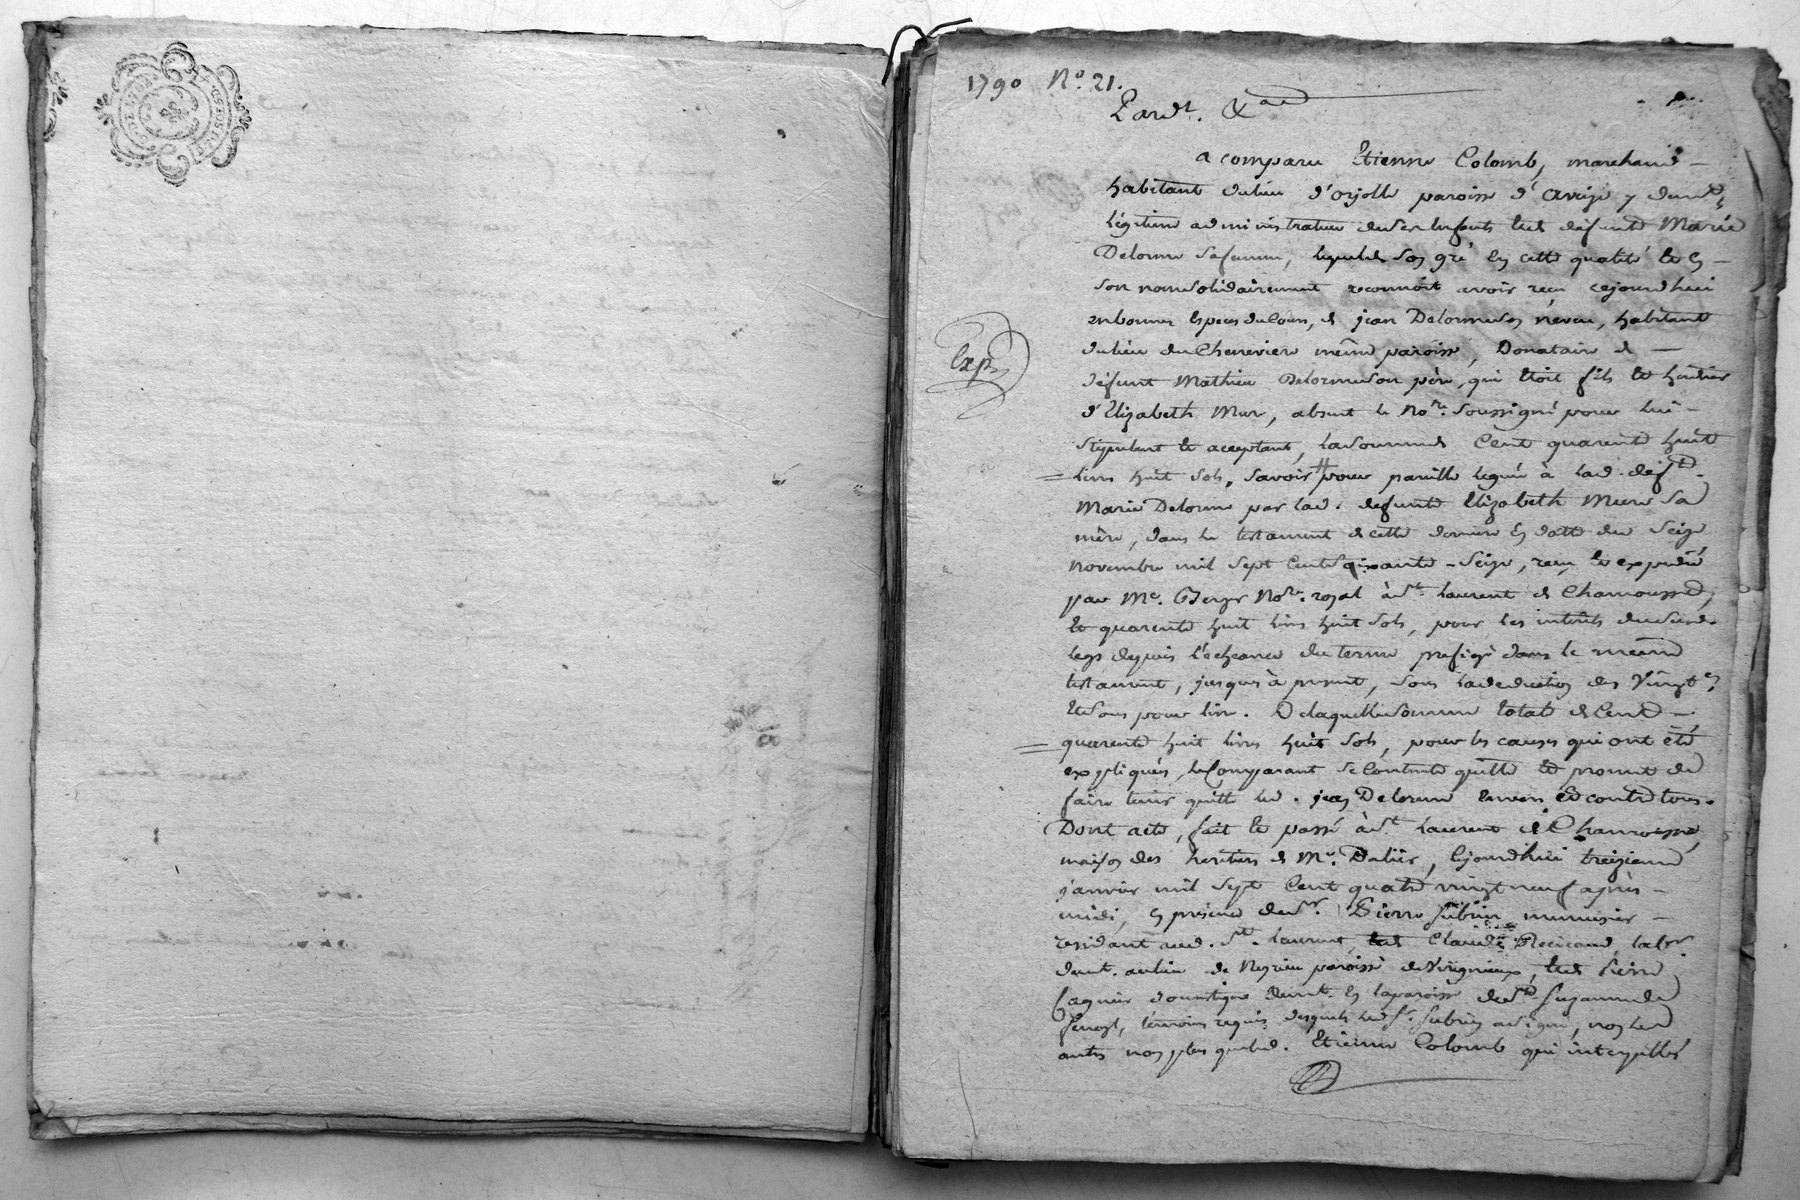 1790 No. 21.
Pardt. &a
a comparu Etienne Colomb, marchand
habitant du lieu d'orjolle paroisse d'Aveize y demt
légitime administrateur de ses Enfants Et de défunte Marie
Delorme sa femme, lequel de son gré En cette qualité Et En
son nom solidairement reconnoit avoir reçu cejourdhui
en bonnes Especes de Cours, de jean Delorme son néveu, habitant
du lieu du Chenevier même paroisse, Donataire de
défunt Mathieu Delorme son père, qui Etoit fils Et héritier
d'Elizabeth Mure, absent le Nore. soussigné pour lui
Stipulant Et acceptant, la somme de Cent quarente huit
livres huit sols, savoir # pour pareille leguée à lad. defte.
Marie Delorme par lad. defunte Elizabeth Mure sa
mère, dans le testament de cette derniere En datte du Seize
Novembre mil sept Cent soixante-Seize, reçu Et expedié
par Me. Berger Nore. royal à St. Laurent de Chamousset,
Et quarente huit livres huit sols, pour les intérêts du susd.
legs depuis l'echeance du terme prefigé dans le meme
testament, jusques à present, sous la deduction des Vingtes.
Et sous pour livre. De laquelle somme totale de Cent
quarente huit livres huit sols, pour les causes qui ont été
expliqués, le Comparant se Contente quitte Et promet de
faire tenir quitte led. jean Delorme Envers Et contre tous.
Dont acte, fait Et passé à St. Laurent de Chamousset,
maison des heritiers de Me. Dalier, Cejourdhui treizieme
janvier mil sept Cent quatre vingt neuf après
midi, En présence de Sr. Pierre Subrin menuisier
residant aud. St. Laurent, Claude labr
demt. au lieu de Neyrieu paroisse de Virigneux, Et de Pierre
domestique demt. En la paroisse de Ste. Suzanne de
témoins requis desquels led. Sr. Subrin a signé, non les
autres non plus que led. Etienne Colomb qui interpellés
Expé